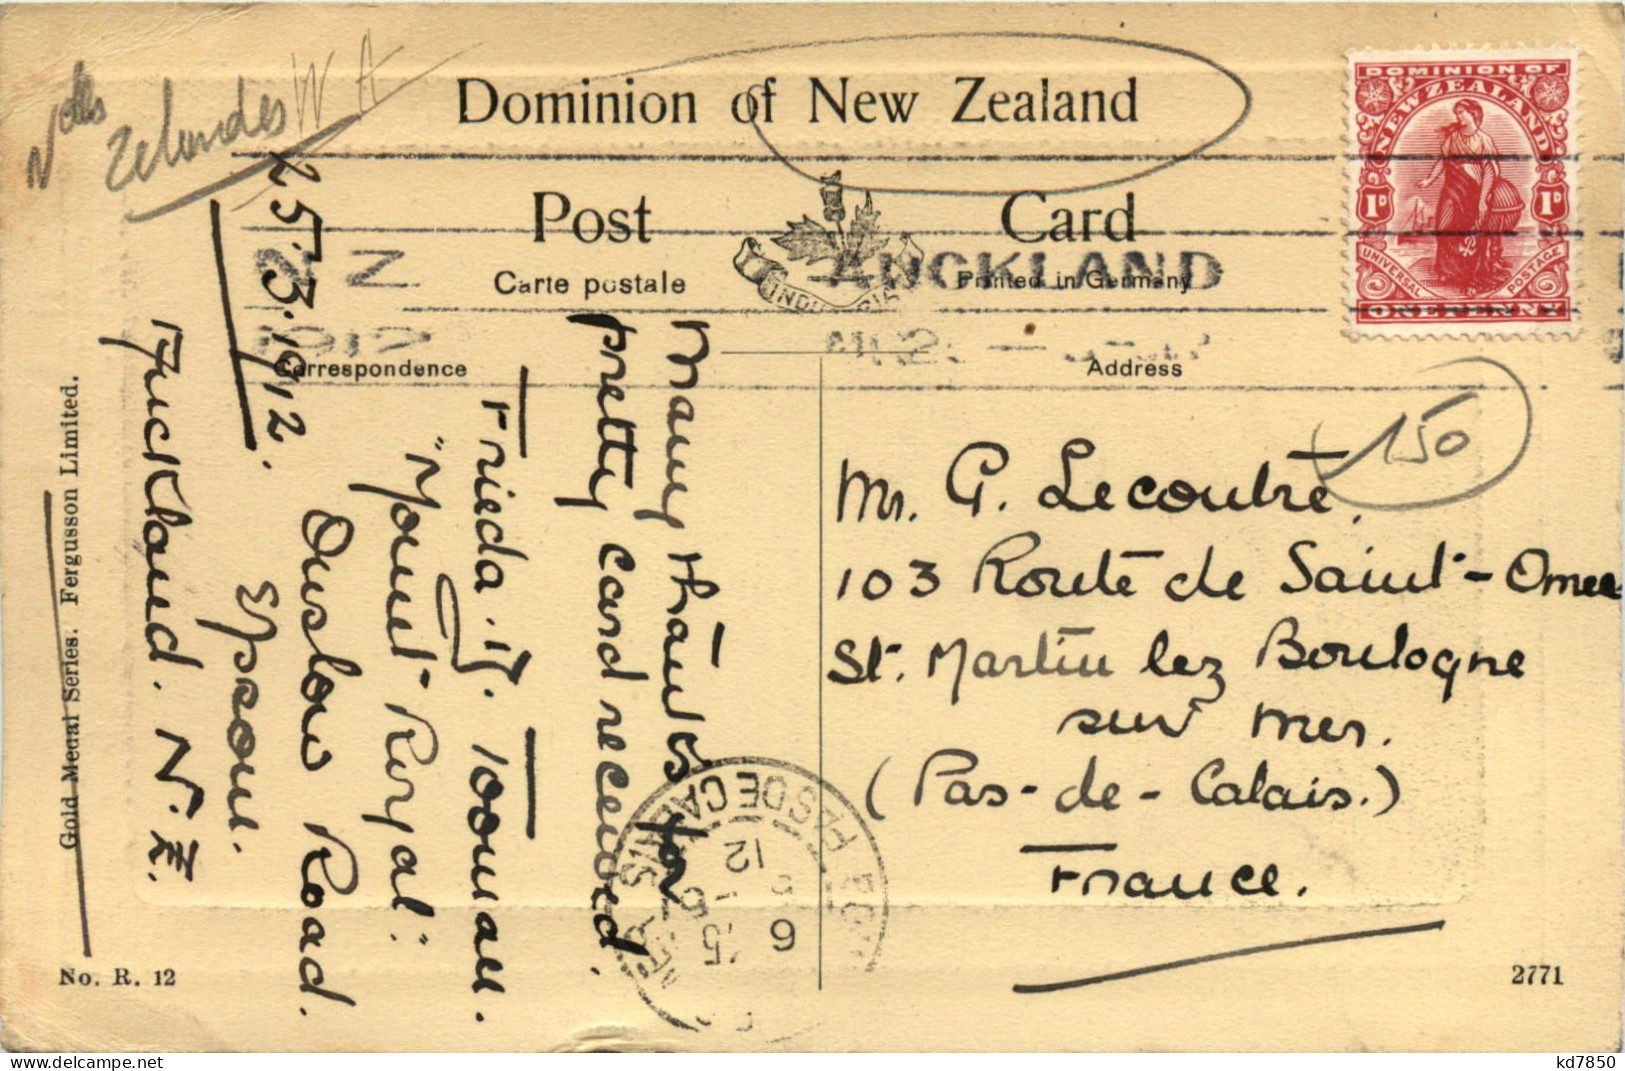 Nlles
Zelandes W A
Dominion of New Zealand
Post Card
Carte postale
Printed in Germany
AUCKLAND
N Z
Correspondence
Address
DOMINION OF
NEW ZEALAND
1D 1D
UNIVERSAL POSTAGE
ONE PENNY
150
Many thanks for
pretty card received.
Frieda. H.
"Mount Royal"
Onslow Road
Epsom.
Auckland. N.Z.
25.3.1912.
Mr. G. Lecoutre.
103 Route de Saint-Omer
St. Martin lez Boulogne
sur mer.
(Pas-de-Calais.)
France.
PAS DE CALAIS
15
6
12
Gold Medal Series. Fergusson Limited.
No. R. 12
2771
Delcampe.net
kd7850